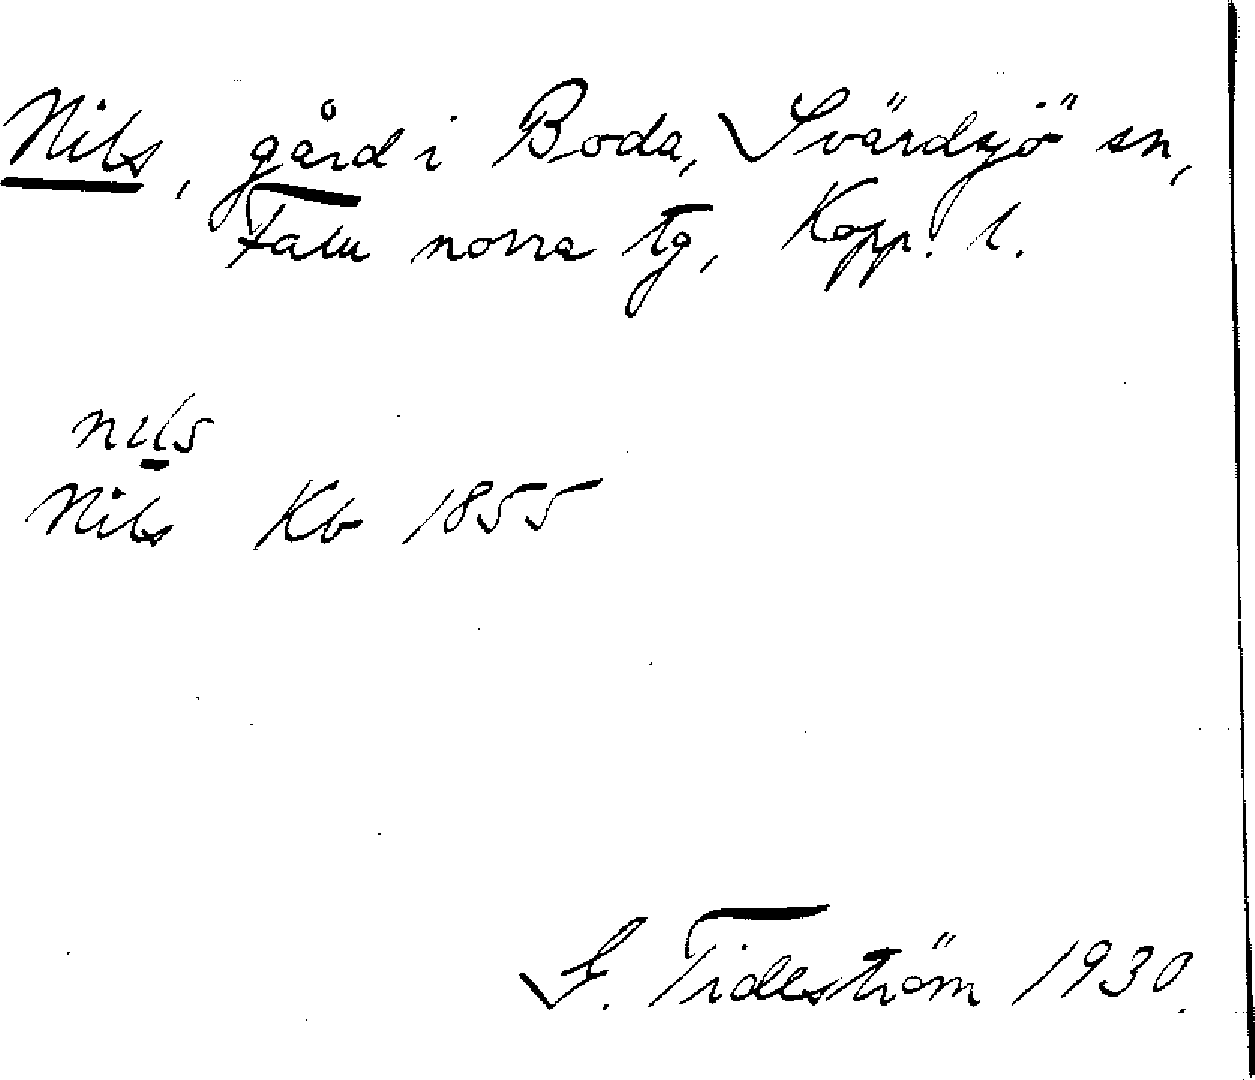 Nils, gård i Boda, Svärdsjö sn,
Falu norra tg, Kopp. l.
nils
Nils Kb 1855
F. Tideström 1930.